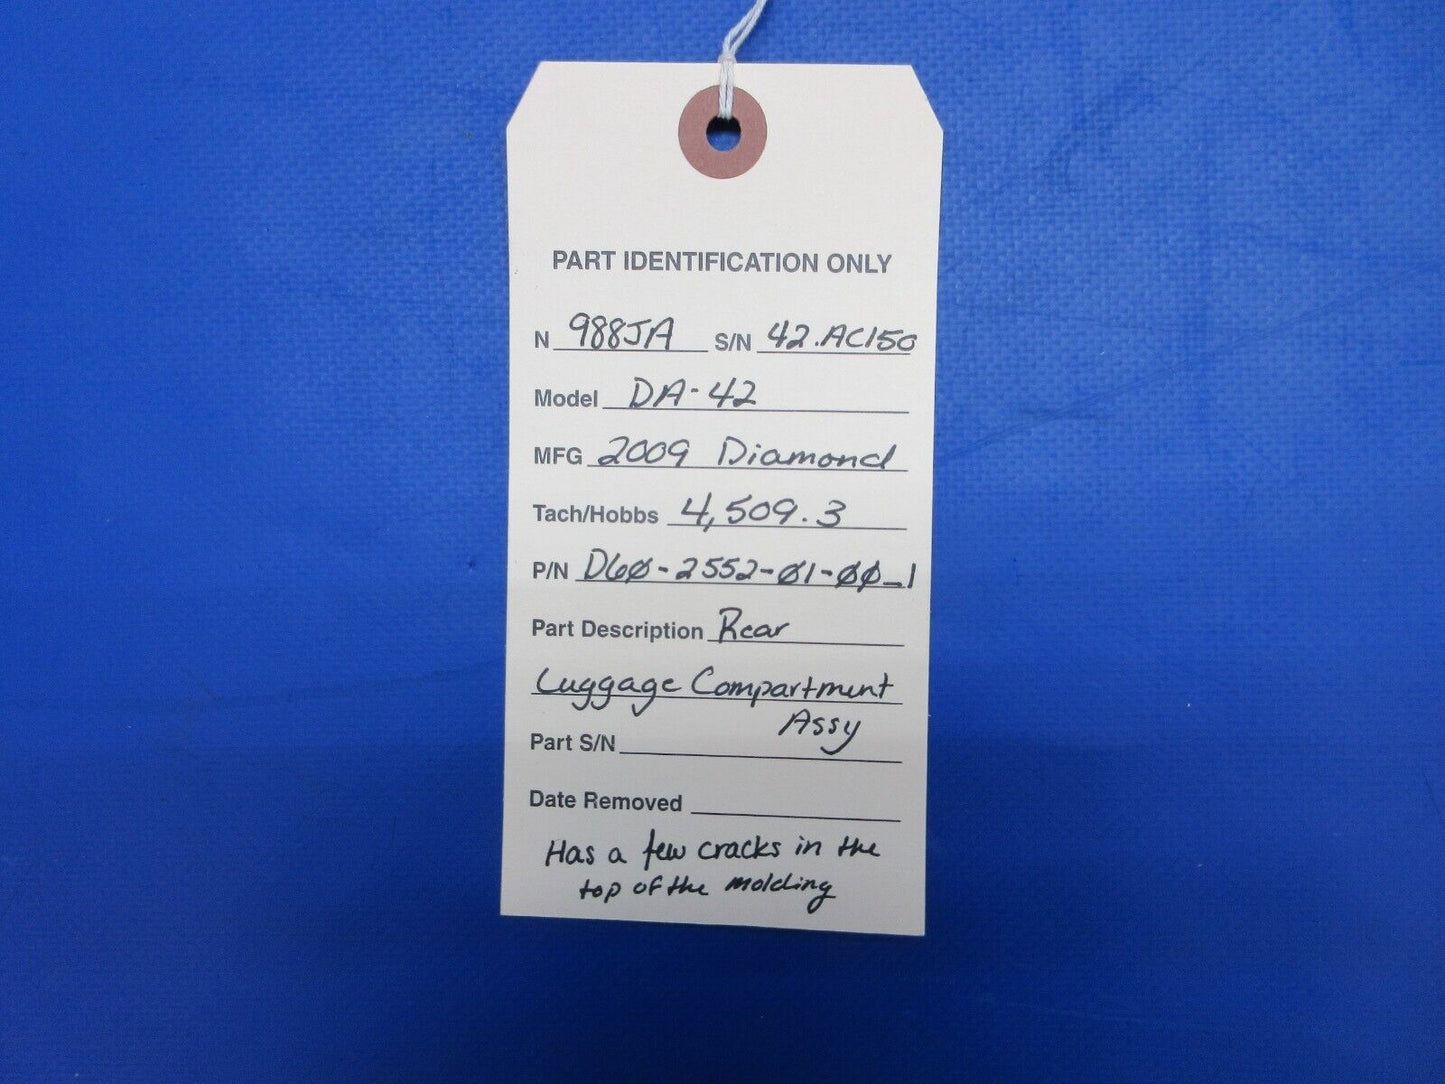 PART IDENTIFICATION ONLY
N 988JA S/N 42.AC150
Model DA-42
MFG 2009 Diamond
Tach/Hobbs 4,509.3
P/N D60-2552-01-00_1
Part Description Rear
Luggage Compartment
Assy
Part S/N
Date Removed
Has a few cracks in the
top of the molding